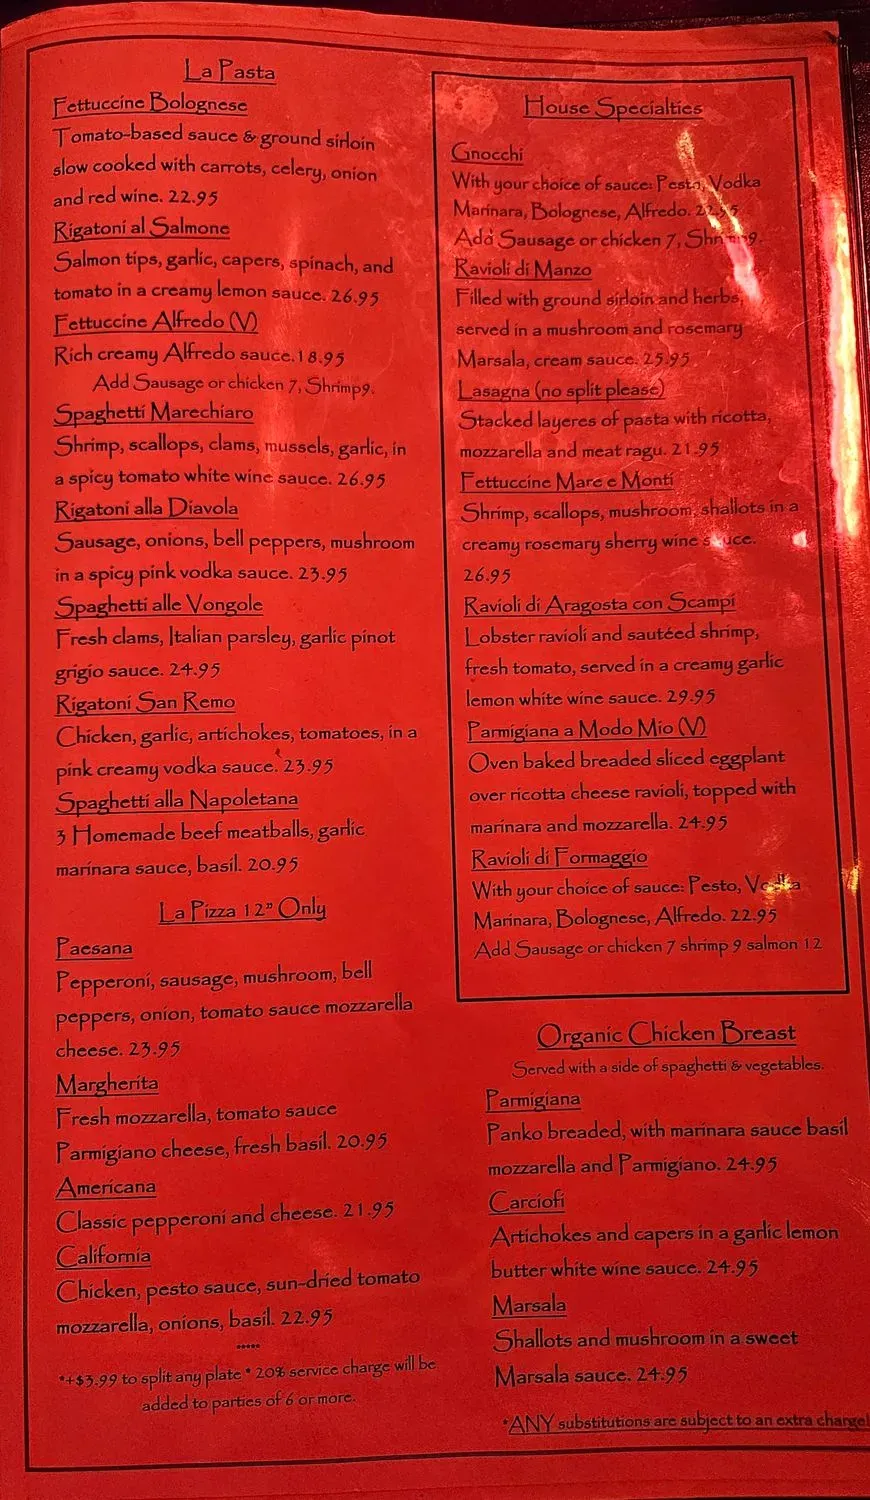 La Pasta
Fettuccine Bolognese
Tomato-based sauce & ground sirloin
slow cooked with carrots, celery, onion
and red wine. 22.95
Rigatoni al Salmone
Salmon tips, garlic, capers, spinach, and
tomato in a creamy lemon sauce. 26.95
Fettuccine Alfredo (V)
Rich creamy Alfredo sauce.18.95
Add Sausage or chicken 7, Shrimp9.
Spaghetti Marechiaro
Shrimp, scallops, clams, mussels, garlic, in
a spicy tomato white wine sauce. 26.95
Rigatoni alla Diavola
Sausage, onions, bell peppers, mushroom
in a spicy pink vodka sauce. 23.95
Spaghetti alle Vongole
Fresh clams, Italian parsley, garlic pinot
grigio sauce. 24.95
Rigatoni San Remo
Chicken, garlic, artichokes, tomatoes, in a
pink creamy vodka sauce. 23.95
Spaghetti alla Napoletana
3 Homemade beef meatballs, garlic
marinara sauce, basil. 20.95
La Pizza 12" Only
Paesana
Pepperoni, sausage, mushroom, bell
peppers, onion, tomato sauce mozzarella
cheese. 23.95
Margherita
Fresh mozzarella, tomato sauce
Parmigiano cheese, fresh basil. 20.95
Americana
Classic pepperoni and cheese. 21.95
California
Chicken, pesto sauce, sun-dried tomato
mozzarella, onions, basil. 22.95
*****
*+$3.99 to split any plate * 20% service charge will be
added to parties of 6 or more.
House Specialties
Gnocchi
With your choice of sauce: Pesto, Vodka
Marinara, Bolognese, Alfredo.
Add Sausage or chicken 7, Shrimp9.
Ravioli di Manzo
Filled with ground sirloin and herbs,
served in a mushroom and rosemary
Marsala, cream sauce. 25.95
Lasagna (no split please)
Stacked layeres of pasta with ricotta,
mozzarella and meat ragu. 21.95
Fettuccine Mare e Monti
Shrimp, scallops, mushroom, shallots in a
creamy rosemary sherry wine sauce.
26.95
Ravioli di Aragosta con Scampi
Lobster ravioli and sautéed shrimp,
fresh tomato, served in a creamy garlic
lemon white wine sauce. 29.95
Parmigiana a Modo Mio (V)
Oven baked breaded sliced eggplant
over ricotta cheese ravioli, topped with
marinara and mozzarella. 24.95
Ravioli di Formaggio
With your choice of sauce: Pesto, Vodka
Marinara, Bolognese, Alfredo. 22.95
Add Sausage or chicken 7 shrimp 9 salmon 12
Organic Chicken Breast
Served with a side of spaghetti & vegetables.
Parmigiana
Panko breaded, with marinara sauce basil
mozzarella and Parmigiano. 24.95
Carciofi
Artichokes and capers in a garlic lemon
butter white wine sauce. 24.95
Marsala
Shallots and mushroom in a sweet
Marsala sauce. 24.95
*ANY substitutions are subject to an extra charge!